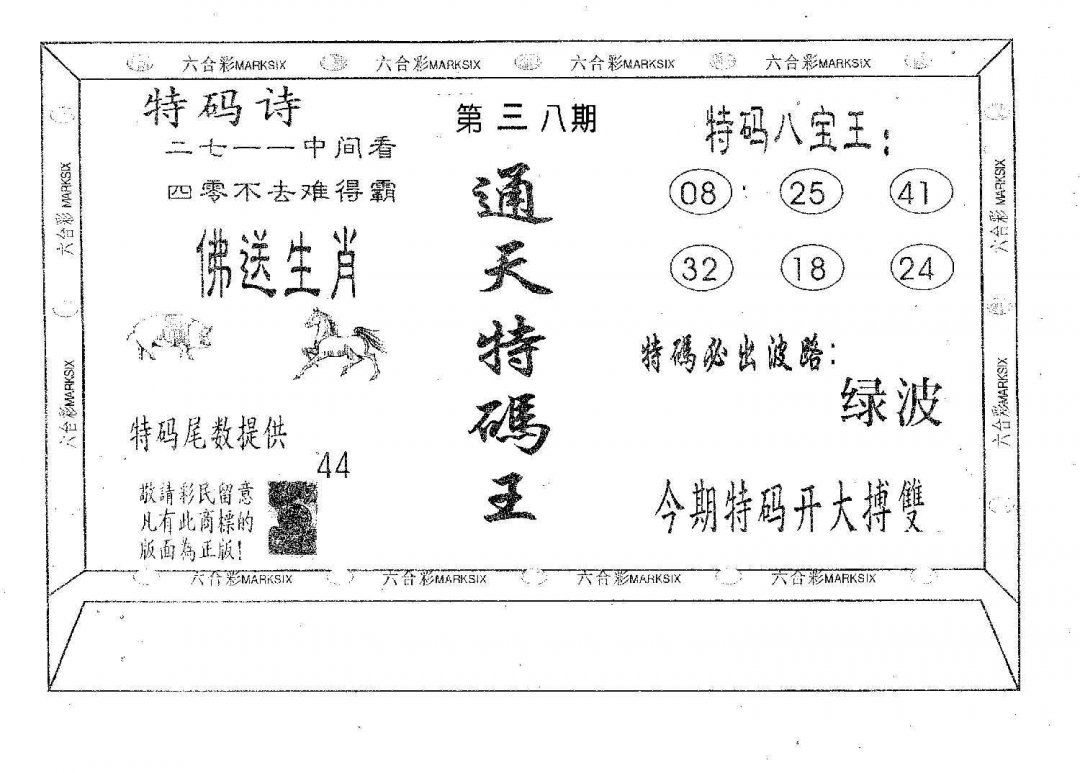 六合彩MARKSIX 六合彩MARKSIX 六合彩MARKSIX 六合彩MARKSIX
特码诗
二七一一中间看
四零不去难得霸
佛送生肖
特码尾数提供
44
敬請彩民留意
凡有此商標的
版面為正版!
第三八期
通天特碼王
特码八宝王:
08 : 25 41
32 18 24
特碼必出波路:
绿波
今期特码开大搏雙
六合彩 MARKSIX
六合彩MARKSIX
六合彩 MARKSIX
六合彩MARKSIX
六合彩MARKSIX 六合彩MARKSIX 六合彩MARKSIX 六合彩MARKSIX